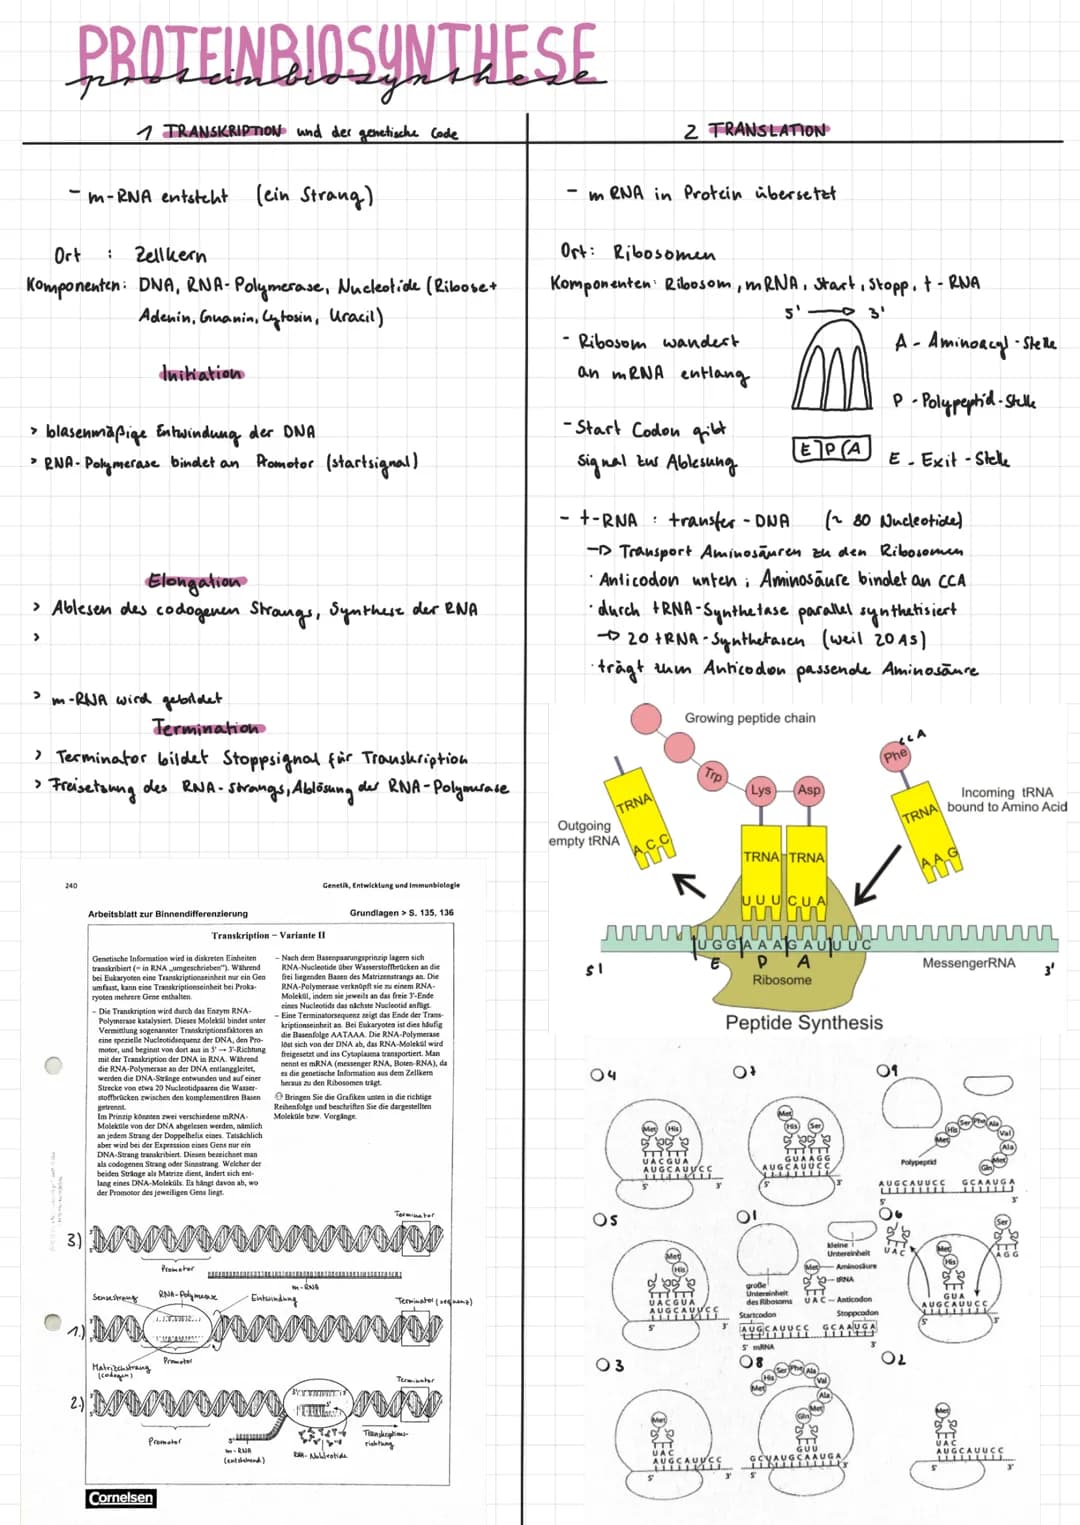 PROTEINBIOSYNTHESE
proteinbiosynthese
1 TRANSKRIPTION und der genetische Code
- m-RNA entsteht (ein Strang)
Ort : Zellkern
Komponenten: DNA, RNA-Polymerase, Nucleotide (Ribose+
Adenin, Guanin, Cytosin, Uracil)
Initiation
> blasenmäßige Entwindung der DNA
> RNA-Polymerase bindet an Promotor (startsignal)
Elongation
> Ablesen des codogenen Strangs, Synthese der RNA
>
> m-RNA wird gebildet
Termination
> Terminator bildet Stoppsignal für Transkription
> Freisetzung des RNA-strangs, Ablösung der RNA-Polymerase
240
Genetik, Entwicklung und Immunbiologie
Arbeitsblatt zur Binnendifferenzierung
Grundlagen > S. 135, 136
Transkription – Variante II
Genetische Information wird in diskreten Einheiten
transkribiert (= in RNA „umgeschrieben"). Während
bei Eukaryoten eine Transkriptionseinheit nur ein Gen
umfasst, kann eine Transkriptionseinheit bei Proka-
ryoten mehrere Gene enthalten.
– Die Transkription wird durch das Enzym RNA-
Polymerase katalysiert. Dieses Molekül bindet unter
Vermittlung sogenannter Transkriptionsfaktoren an
eine spezielle Nucleotidsequenz der DNA, den Pro-
motor, und beginnt von dort aus in 5' → 3'-Richtung
mit der Transkription der DNA in RNA. Während
die RNA-Polymerase an der DNA entlanggleitet,
werden die DNA-Stränge entwunden und auf einer
Strecke von etwa 20 Nucleotidpaaren die Wasser-
stoffbrücken zwischen den komplementären Basen
getrennt.
Im Prinzip könnten zwei verschiedene mRNA-
Moleküle von der DNA abgelesen werden, nämlich
an jedem Strang der Doppelhelix eines. Tatsächlich
aber wird bei der Expression eines Gens nur ein
DNA-Strang transkribiert. Diesen bezeichnet man
als codogenen Strang oder Sinnstrang. Welcher der
beiden Stränge als Matrize dient, ändert sich ent-
lang eines DNA-Moleküls. Es hängt davon ab, wo
der Promotor des jeweiligen Gens liegt.
– Nach dem Basenpaarungsprinzip lagern sich
RNA-Nucleotide über Wasserstoffbrücken an die
frei liegenden Basen des Matrizenstrangs an. Die
RNA-Polymerase verknüpft sie zu einem RNA-
Molekül, indem sie jeweils an das freie 3'-Ende
eines Nucleotids das nächste Nucleotid anfügt.
– Eine Terminatorsequenz zeigt das Ende der Trans-
kriptionseinheit an. Bei Eukaryoten ist dies häufig
die Basenfolge AATAAA. Die RNA-Polymerase
löst sich von der DNA ab, das RNA-Molekül wird
freigesetzt und ins Cytoplasma transportiert. Man
nennt es mRNA (messenger RNA, Boten-RNA), da
es die genetische Information aus dem Zellkern
heraus zu den Ribosomen trägt.
Bringen Sie die Grafiken unten in die richtige
Reihenfolge und beschriften Sie die dargestellten
Moleküle bzw. Vorgänge.
3)
Terminator
Promotor
m-RNA
Sensestrang
RNA-Polymerase
Entwindung
Terminator (sequenz)
1.)
Matrizenstrang
(codogen)
Promotor
2.)
Terminator
Promotor
m-RNA
(entstehend)
RNA-Nukleotide
Transkriptions-
richtung
Cornelsen
2 TRANSLATION
- mRNA in Protein übersetzt
Ort: Ribosomen
Komponenten: Ribosom, mRNA, Start, Stopp, t-RNA
5' 3'
- Ribosom wandert
an mRNA entlang
- Start Codon gibt
Signal zur Ablesung
E P A
A - Aminoacyl-Stelle
P - Polypeptid-Stelle
E - Exit-Stelle
- t-RNA : transfer-DNA (~ 80 Nucleotide)
→ Transport Aminosäuren zu den Ribosomen
· Anticodon unten ; Aminosäure bindet an CCA
· durch tRNA-Synthetase parallel synthetisiert
→ 20 tRNA-Synthetasen (weil 20 AS)
· trägt zum Anticodon passende Aminosäure
Growing peptide chain
Trp
Lys
Asp
Phe
CCA
Incoming tRNA
bound to Amino Acid
Outgoing
empty tRNA
TRNA
ACC
TRNA
TRNA
TRNA
AAG
UUU CUA
UGGAAAGAUUUC
E P A
5'
3'
Ribosome
MessengerRNA
Peptide Synthesis
4
Met His
UACGUA
AUGCAUUCC
5' 3'
7
Met
His Ser
GUAAGG
AUGCAUUCC
5' 3'
9
Polypeptid
Met His Ser Phe Ala
Val
Ala
Met
Gln
AUGCAUUCC GCAAUGA
5' 3'
5
Met
His
UACGUA
AUGCAUUCC
5' 3'
1
kleine
Untereinheit
Met Aminosäure
tRNA
UAC Anticodon
große
Untereinheit
des Ribosoms
Startcodon
Stoppcodon
AUGCAUUCC GCAAUGA
5' mRNA 3'
6
UAC
Met
His
Ser
AGG
GUA
AUGCAUUCC
5' 3'
3
Met
UAC
AUGCAUUCC
5' 3'
8
Met His Ser Phe Ala
Val
Ala
Met
Gln
GUU
GCVAUGCAAUGA
5' 3'
2
Met
UAC
AUGCAUUCC
5' 3'